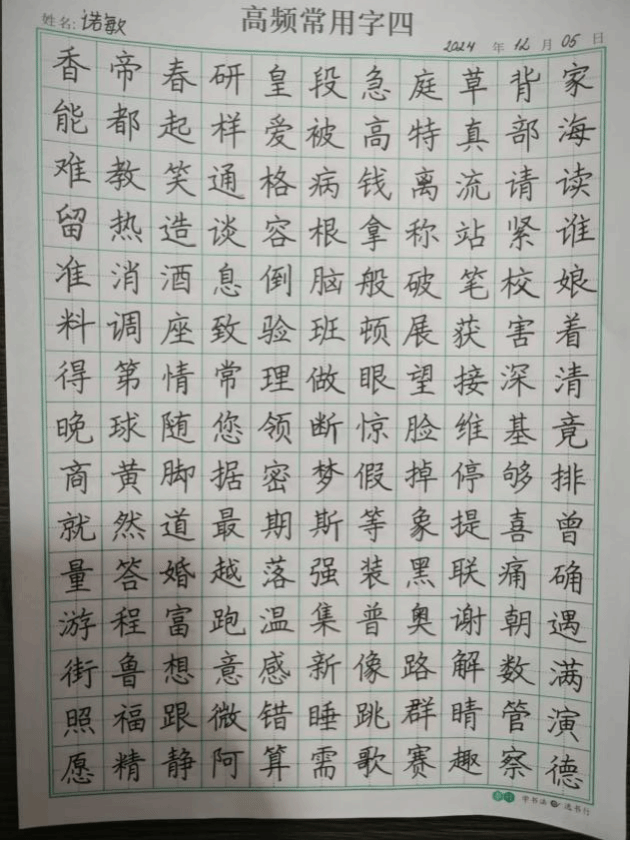 高频常用字四
姓名: 诺敏
2024 年 12 月 05 日
香帝春研皇段急庭草背家
能都起样爱被高特真部海
难教笑通格病钱离流请读
留热造谈容根拿称站紧谁
准消酒息倒脑般破笔校娘
料调座致验班顿展获害着
得第情常理做眼望接深清
晚球随您领断惊脸维基竟
商黄脚据密梦假掉停够排
就然道最期斯等象提喜曾
量答婚越落强装黑联痛确
游程富跑温集普奥谢朝遇
街鲁想意感新像路解数满
照福跟微错睡跳群晴管演
愿精静阿算需歌赛趣察德
学书法 选书行